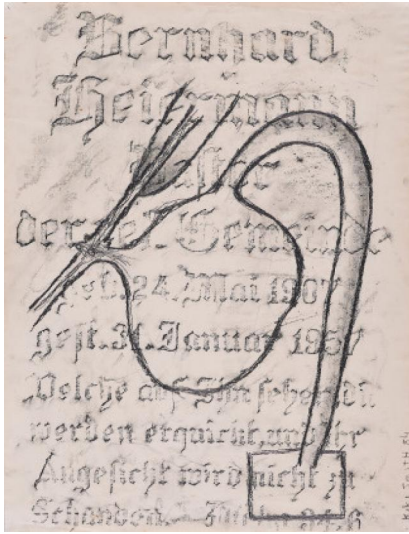 Bernhard
Heiermann
Pastor
der ref. Gemeinde
geb. 24. Mai 1907
gest. 31. Januar
Welche auf Ihn sehen, die
werden erquickt, und ihr
Angesicht wird nicht zu
Schanden. 34.6